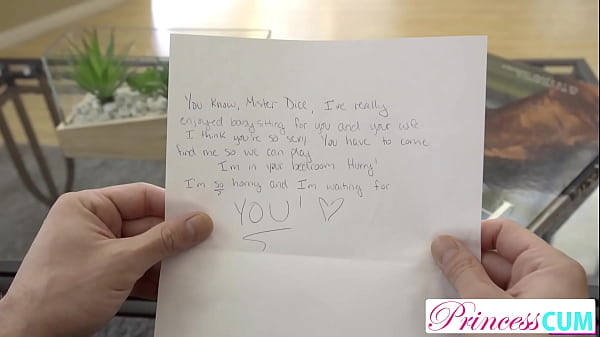 You know, Mister Dice, I've really
enjoyed babysitting for you and your wife
I think you're so sexy. You have to come
find me so we can play.
I'm in your bedroom Hurry!
I'm so horny and I'm waiting for
YOU! ♡
PrincessCUM